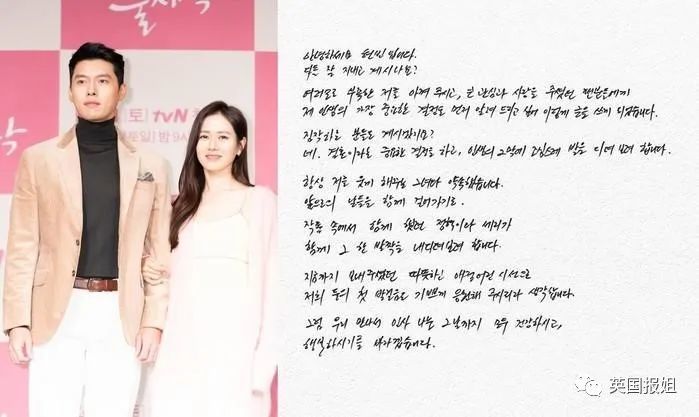 불시착
[토] tvN
토일] 밤 9
착
안녕하세요 현빈입니다.
다들 잘 지내고 계시나요?
여러모로 부족한 저를 아껴 주시고, 또 관심과 사랑을 주셨던 팬분들에게
제 인생의 가장 중요한 결정을 먼저 알려 드리고 싶어 이렇게 글을 쓰게 되었습니다.
짐작하는 분들도 계시겠지요?
네. 결혼이라는 중요한 결정을 하고, 인생의 2막에 조심스레 발을 디뎌 보려 합니다.
항상 저를 웃게 해주는 그녀와 약속했습니다.
앞으로의 날들을 함께 걸어가기로.
작품 속에서 함께 했던 정혁이와 세리가
함께 그 한 발짝을 내디뎌보려 합니다.
지금까지 보내주셨던 따뜻하고 애정어린 시선으로
저희 둘의 첫 발걸음을 기쁘게 응원해 주시리라 생각합니다.
그럼 우리 만나서 인사 나눌 그날까지 모두 건강하시고,
행복하시기를 바라겠습니다.
英国报姐